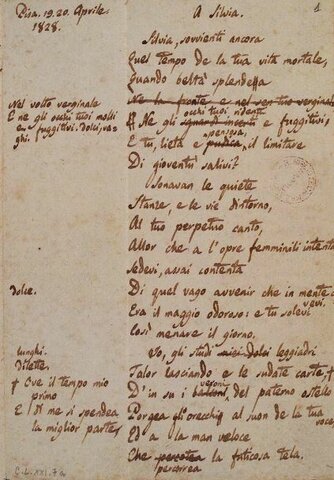 1
Pisa. 19. 20. Aprile.
1828.
A Silvia.
Silvia, sovvienti ancora
Quel tempo de la tua vita mortale,
Quando beltà splendea
Ne la fronte e nel sen tuo verginale
Nel volto verginale
E ne gli occhi tuoi molli
e fuggitivi. dolci, va-
ghi.
occhi tuoi ridenti
Ne gli sguardi incerti e fuggitivi,
pensosa,
E tu, lieta e pudica, il limitare
Di gioventù salivi?
Sonavan le quiete
Stanze, e le vie dintorno,
Al tuo perpetuo canto,
Allor che a l'opre femminili intenta
Sedevi, assai contenta
dolce.
Di quel vago avvenir che in mente
avevi.
Era il maggio odoroso: e tu solevi
Così menare il giorno.
lunghi.
Dilette.
Io, gli studi miei dolci leggiadri
Talor lasciando e le sudate carte †
† Ove il tempo mio
primo
E di me si spendea
la miglior parte,
veroni
D'in su i balconi del paterno ostello
Porgea gli orecchi al suon de la tua
voce,
Ed a la man veloce
Che percotea la faticosa tela.
percorrea
C.L.XXI.7a